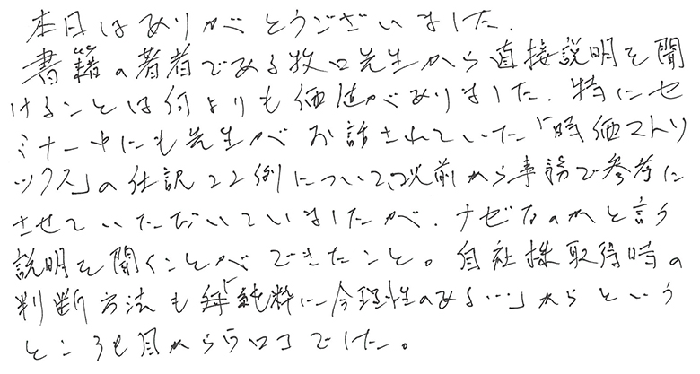 本日はありがとうございました.
書籍の著者である牧口先生から直接説明を聞
けることは何よりも価値がありました. 特にセ
ミナー中にも先生がお話されていた「時価マトリ
ックス」の仕訳22例について以前から事務で参考に
させていただいていましたが、ナゼなのかと言う
説明を聞くことができたこと。自社株取得時の
判断方法も「純粋に合理性のある…」からという
ところも目からウロコでした。